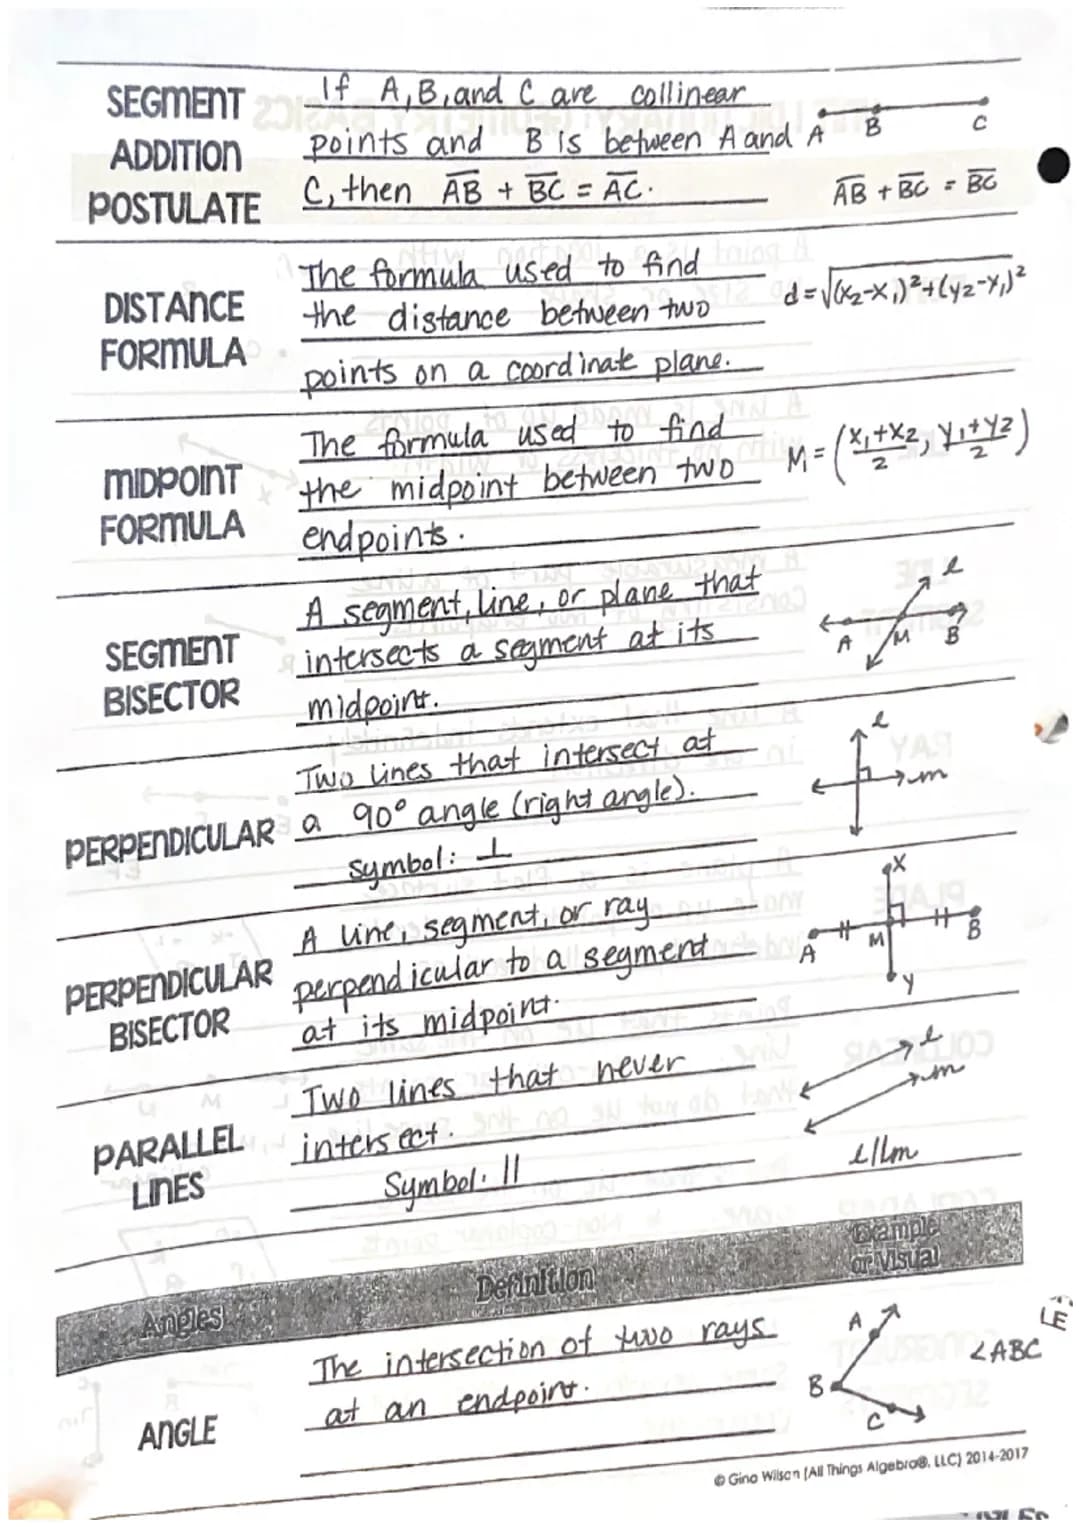 SEGMENT
ADDITION
POSTULATE
If A, B, and C are collinear
points and B is between A and
C, then AB + BC = AC.
A B C
AB + BC = BC
DISTANCE
FORMULA
The formula used to find
the distance between two
points on a coordinate plane.
d = √(x₂-x₁)²+(y₂-y₁)²
MIDPOINT
FORMULA
The formula used to find
the midpoint between two
endpoints.
M = (x₁+x₂/2, y₁+y₂/2)
SEGMENT
BISECTOR
A segment, line, or plane that
intersects a segment at its
midpoint.
l
A M B
PERPENDICULAR
Two lines that intersect at
a 90° angle (right angle).
Symbol: ⊥
l
m
PERPENDICULAR
BISECTOR
A line, segment, or ray
perpendicular to a segment
at its midpoint.
X
A M B
Y
PARALLEL
LINES
Two lines that never
intersect.
Symbol: ||
l
m
l||m
Angles
Definition
Example
or Visual
ANGLE
The intersection of two rays
at an endpoint.
A
B
C
∠ABC
© Gina Wilson (All Things Algebra®, LLC) 2014-2017